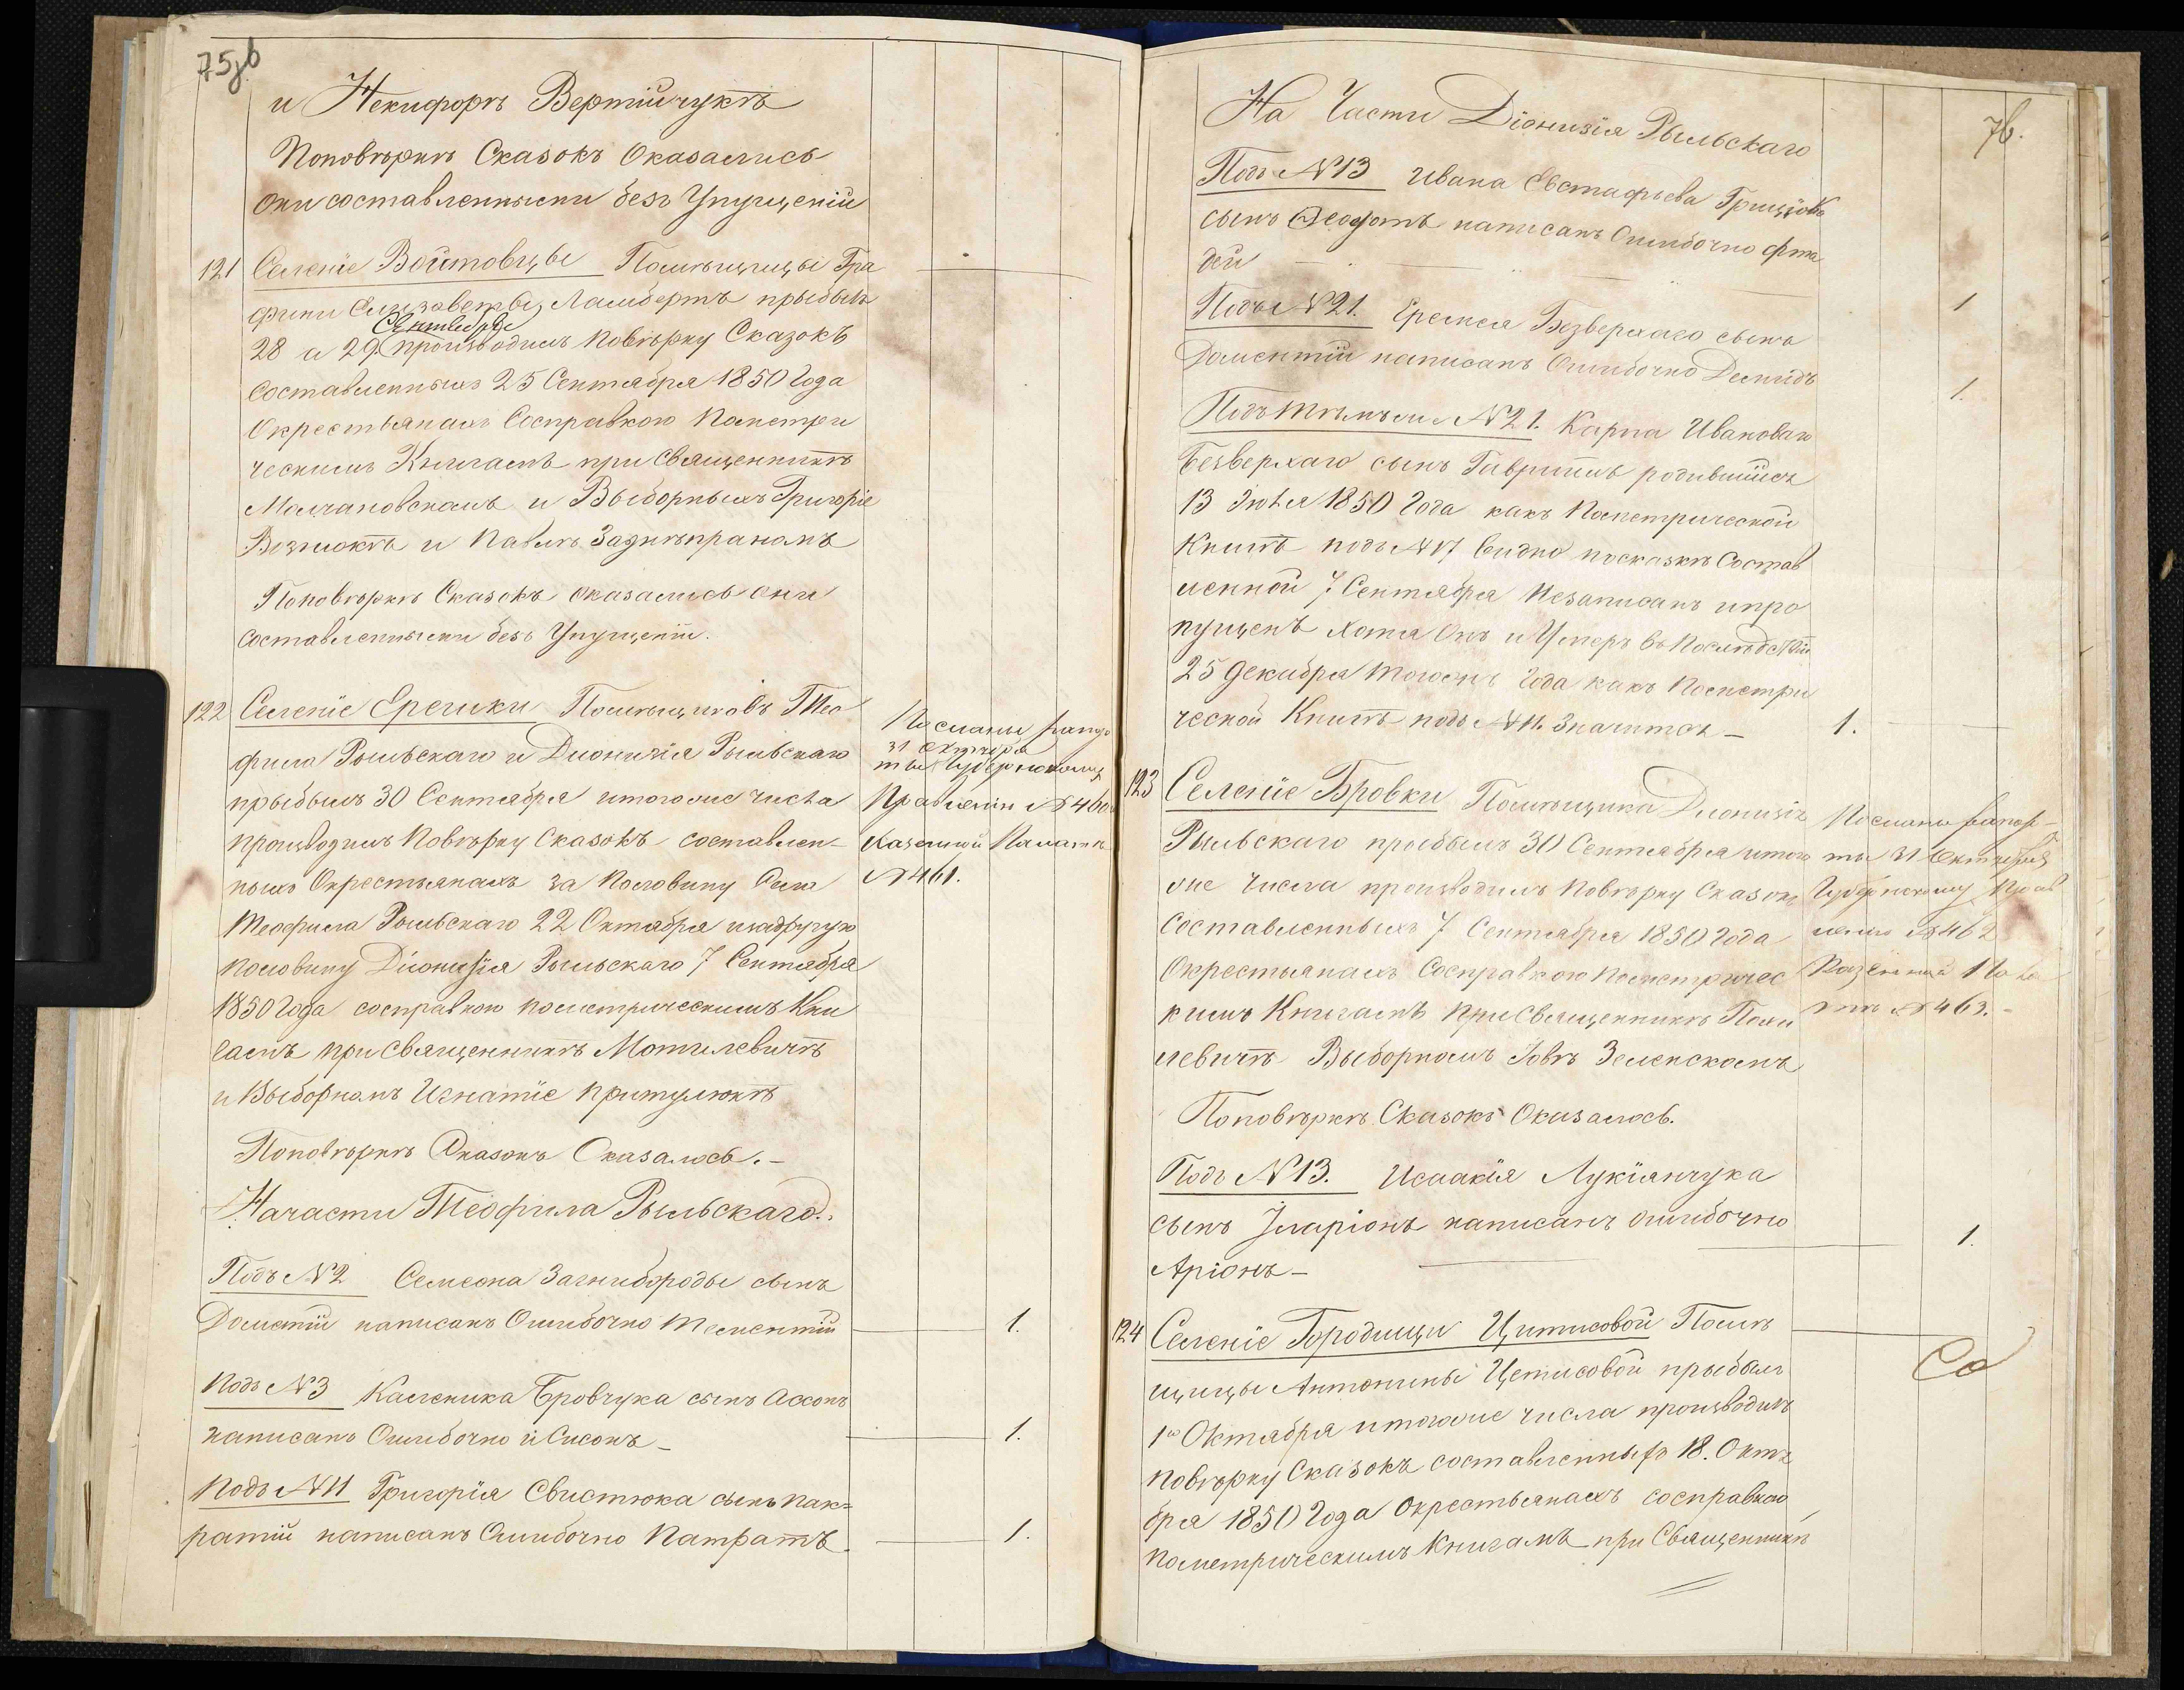 75об
и Никифоръ Вертійчукъ
Поповѣркѣ Сказокъ Оказались
они составленными безъ Упущеній
121 Селеніе Войтовцы Помѣщицы Гра
фини Елизаветы Ламбертъ прыбылъ
Сентября
28 и 29 производилъ повѣрку Сказокъ
Составленныхъ 25 Сентября 1850 Года
Окрестьянахъ Сосправкою Пометри
ческимъ Книгамъ при Священникѣ
Молчановскомъ и Выборныхъ Григоріе
и Павлѣ Заднѣпраномъ
Поповѣркѣ Сказокъ оказались они
составленными безъ Упущеній.
122 Селеніе Ерешки Помѣщиковъ Тео
фила Рыльскаго и Діонизія Рыльскаго
прыбылъ 30 Сентября итогоже числа
производилъ Повѣрку Сказокъ составлен-
ныхъ Окрестьянахъ за Половину Села
Теофила Рыльскаго 22 Октября изадругую
половину Діонизія Рыльскаго 7 Сентября
1850 Года сосправкою пометрическимъ Кни
гамъ при священникѣ Мотилевичѣ
и Выборномъ Игнатіе Притулюкѣ
Поповѣркѣ Сказокъ Оказалось.-
Начасти Теофила Рыльскаго.
Подъ №2 Семеона Загнибороды сынъ
Дометій написанъ Ошибочно Терентій 1.
Подъ №3 Каленика Бровчука сынъ Ассонъ
написанъ Ошибочно и Сисонъ- 1.
Подъ №11 Григорія Свистюка сынъ Пак=
ратій написанъ Ошибочно Патратъ. 1.
Посланы рапор
31 Октября
ты Губернскому
Правленію №460
Казенной Палатѣ
№461.
76.
На Части Діонизія Рыльскаго
Подъ №13 Ивана Евстафьева Грицюка
сынъ Ѳеодотъ написанъ Ошибочно Фта
дей 1
Подъ №21. Еремея Безверхаго сынъ
Доментій написанъ Ошибочно Демидъ 1.
Подъ тѣмъже №21. Карпа Ивановаго
Безверхаго сынъ Гавриилъ родившійся
13 Іюля 1850 Года какъ Пометрической
Книгѣ подъ №17 видно посказкѣ Состав
ленной 7 Сентября Незаписанъ ипро
пущенъ хотя Онъ и Умеръ въ Послѣдствіи
25 Декабря тогожъ Года какъ Пометри
ческой Книгѣ подъ №11. Значится- 1.
123 Селеніе Бровки Помѣщика Діонизія
Рыльскаго прыбылъ 30 Сентября итого
же Числа производилъ Повѣрку Сказокъ
Составленныхъ 7 Сентября 1850 Года
Окрестьянахъ Сосправкою Пометричес
кимъ Книгамъ При Священникѣ
Выборномъ Іовѣ Зеленскомъ
Поповѣркѣ Сказокъ Оказалось.
Подъ №13. Исаакія Лукіянчука
сынъ Іларіонъ написанъ ошибочно 1.
Аріонъ-
Посланы рапор-
ты 31 Октября
Губернскому Прав
ленію №462
Казенной Пала
тѣ №463.-
124 Селеніе Городищи Цитисовой Помѣ
щицы Антонины Цетисовой прыбылъ
1го Октября итогоже числа производилъ
повѣрку Сказокъ составленныхъ 18. Октя
бря 1850 Года Окрестьянахъ сосправкою
пометрическимъ Книгамъ при Священникѣ